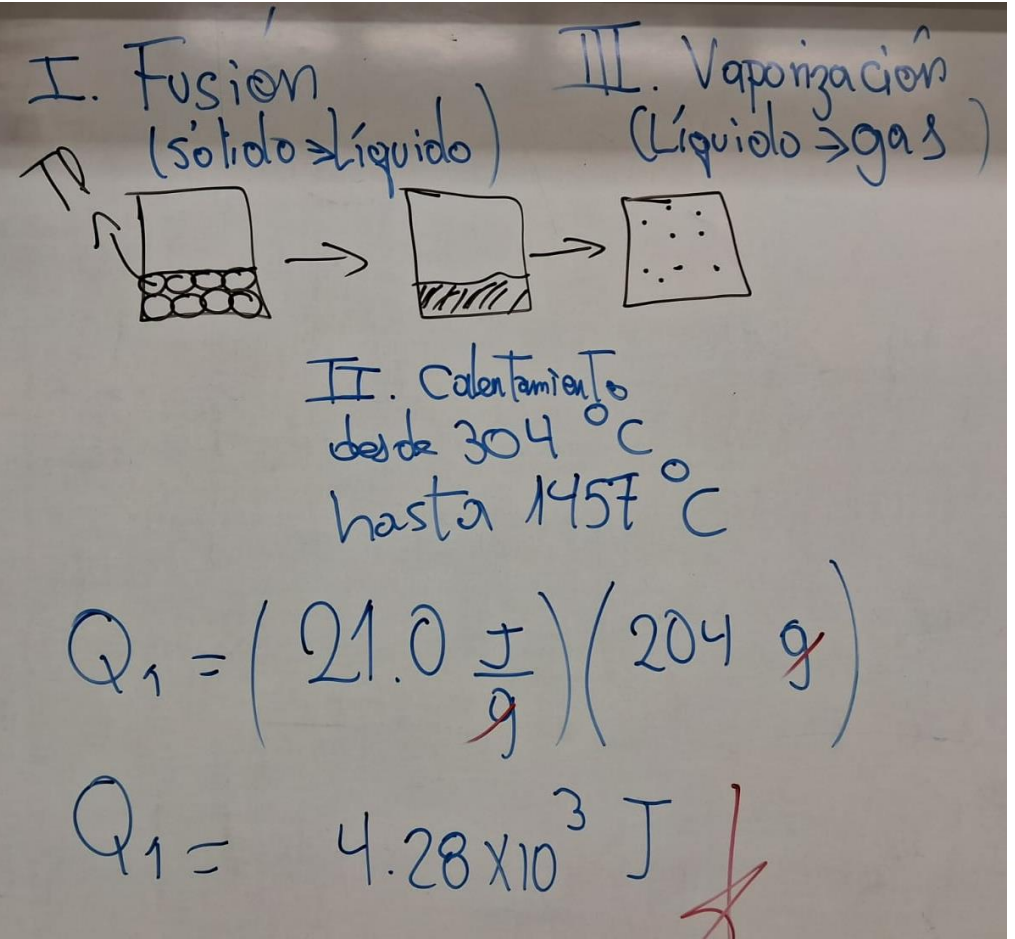 I. Fusión
(sólido⇒Líquido)
III. Vaporización
(Líquido⇒gas)
Tl
II. Calentamiento
desde 304 °C
hasta 1457 °C
Q₁ = (21.0 J/g)(204 g)
Q₁ = 4.28x10³ J